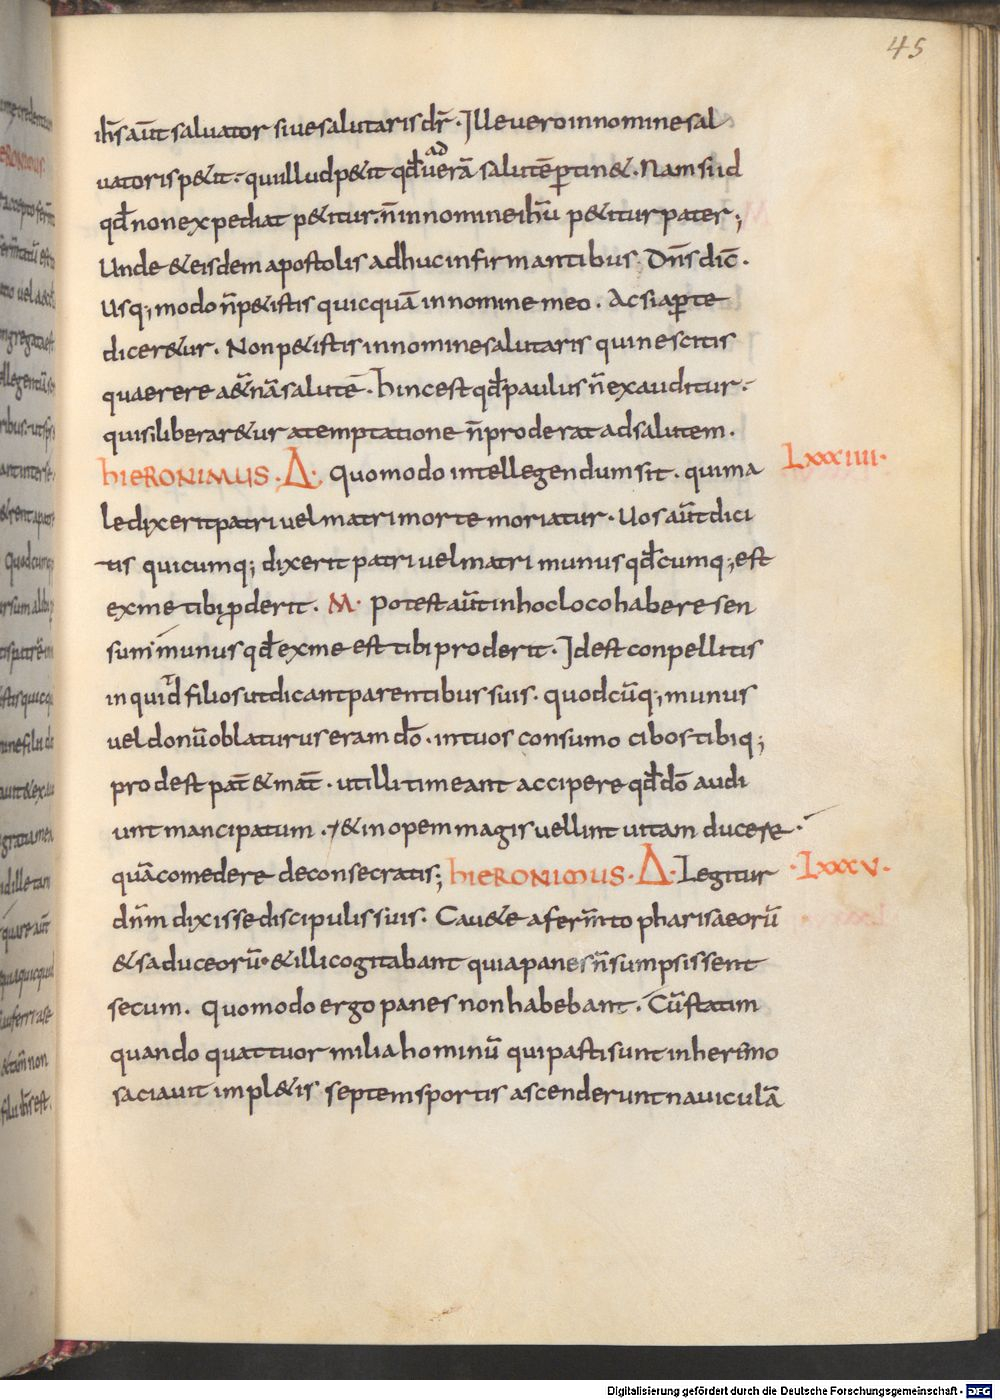 45
ih̅s aut̅ saluator siue salutaris dr̅. Ille uero in nomine sal
uatoris p&it. qui illud p&it qd̅ ad uerā salutē ꝑtin&. Nam si id
qd̅ non expediat p&itur. n̅ in nomine ihu̅ p&itur pater;
Unde & eisdem apostolis adhuc infirmantibus Dn̅s dic̅.
Usq; modo n̅ p&istis quicquā in nomine meo. Ac si aꝑte
dicer&ur. Non p&istis in nomine salutaris qui nescitis
quaerere a&̅nā salutē. hinc est qd̅ paulus n̅ exauditur.
qui si liberar&ur a temptatione n̅ proderat ad salutem.
hIERONIMUS. Δ. Quomodo intellegendum sit. qui ma
LXXXIIII.
ledixerit patri uel matri morte moriatur. Uos aut̅ dici
tis quicumq; dixerit patri uel matri munus qd̅cumq; est
ex me tibi ꝓderit. M. Potest aut̅ in hoc loco habere sen
sum munus qd̅ ex me est tibi proderit. Id est conpellitis
inquid filios ut dicant parentibus suis. quodcu̅q; munus
uel donu̅ oblaturus eram do̅. in tuos consumo cibos tibiq;
prodest pat̅ & mat̅. ut illi timeant accipere qd̅ do̅ audi
unt mancipatum. & inopem magis uellint uitam ducere.
quā comedere de consecratis; hIERONIMUS. Δ. Legitur
.LXXXV.
dn̅m dixisse discipulis suis. Cau&e a ferm̅to pharisaeoru̅
& saduceoru̅. & illi cogitabant quia panes n̅ sumpsissent
secum. Quomodo ergo panes non habebant. Cu̅ statim
quando quattuor milia hominu̅ qui pasti sunt in heremo
saciauit impl&is septem sportis ascenderunt nauiculā
Digitalisierung gefördert durch die Deutsche Forschungsgemeinschaft - DFG